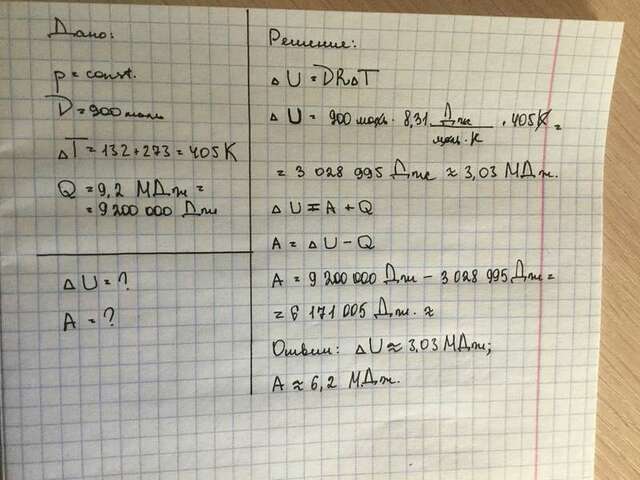 Дано:
p = const.
D = 900 моль
ΔT = 132 + 273 = 405 K
Q = 9,2 МДж =
= 9 200 000 Дж
ΔU = ?
A = ?
Решение:
ΔU = DRΔT
ΔU = 900 моль · 8,31 Дж/моль·K · 405 K =
= 3 028 995 Дж ≈ 3,03 МДж.
ΔU = A + Q
A = ΔU - Q
A = 9 200 000 Дж - 3 028 995 Дж =
= 6 171 005 Дж. ≈
Ответ: ΔU ≈ 3,03 МДж;
A ≈ 6,2 МДж.